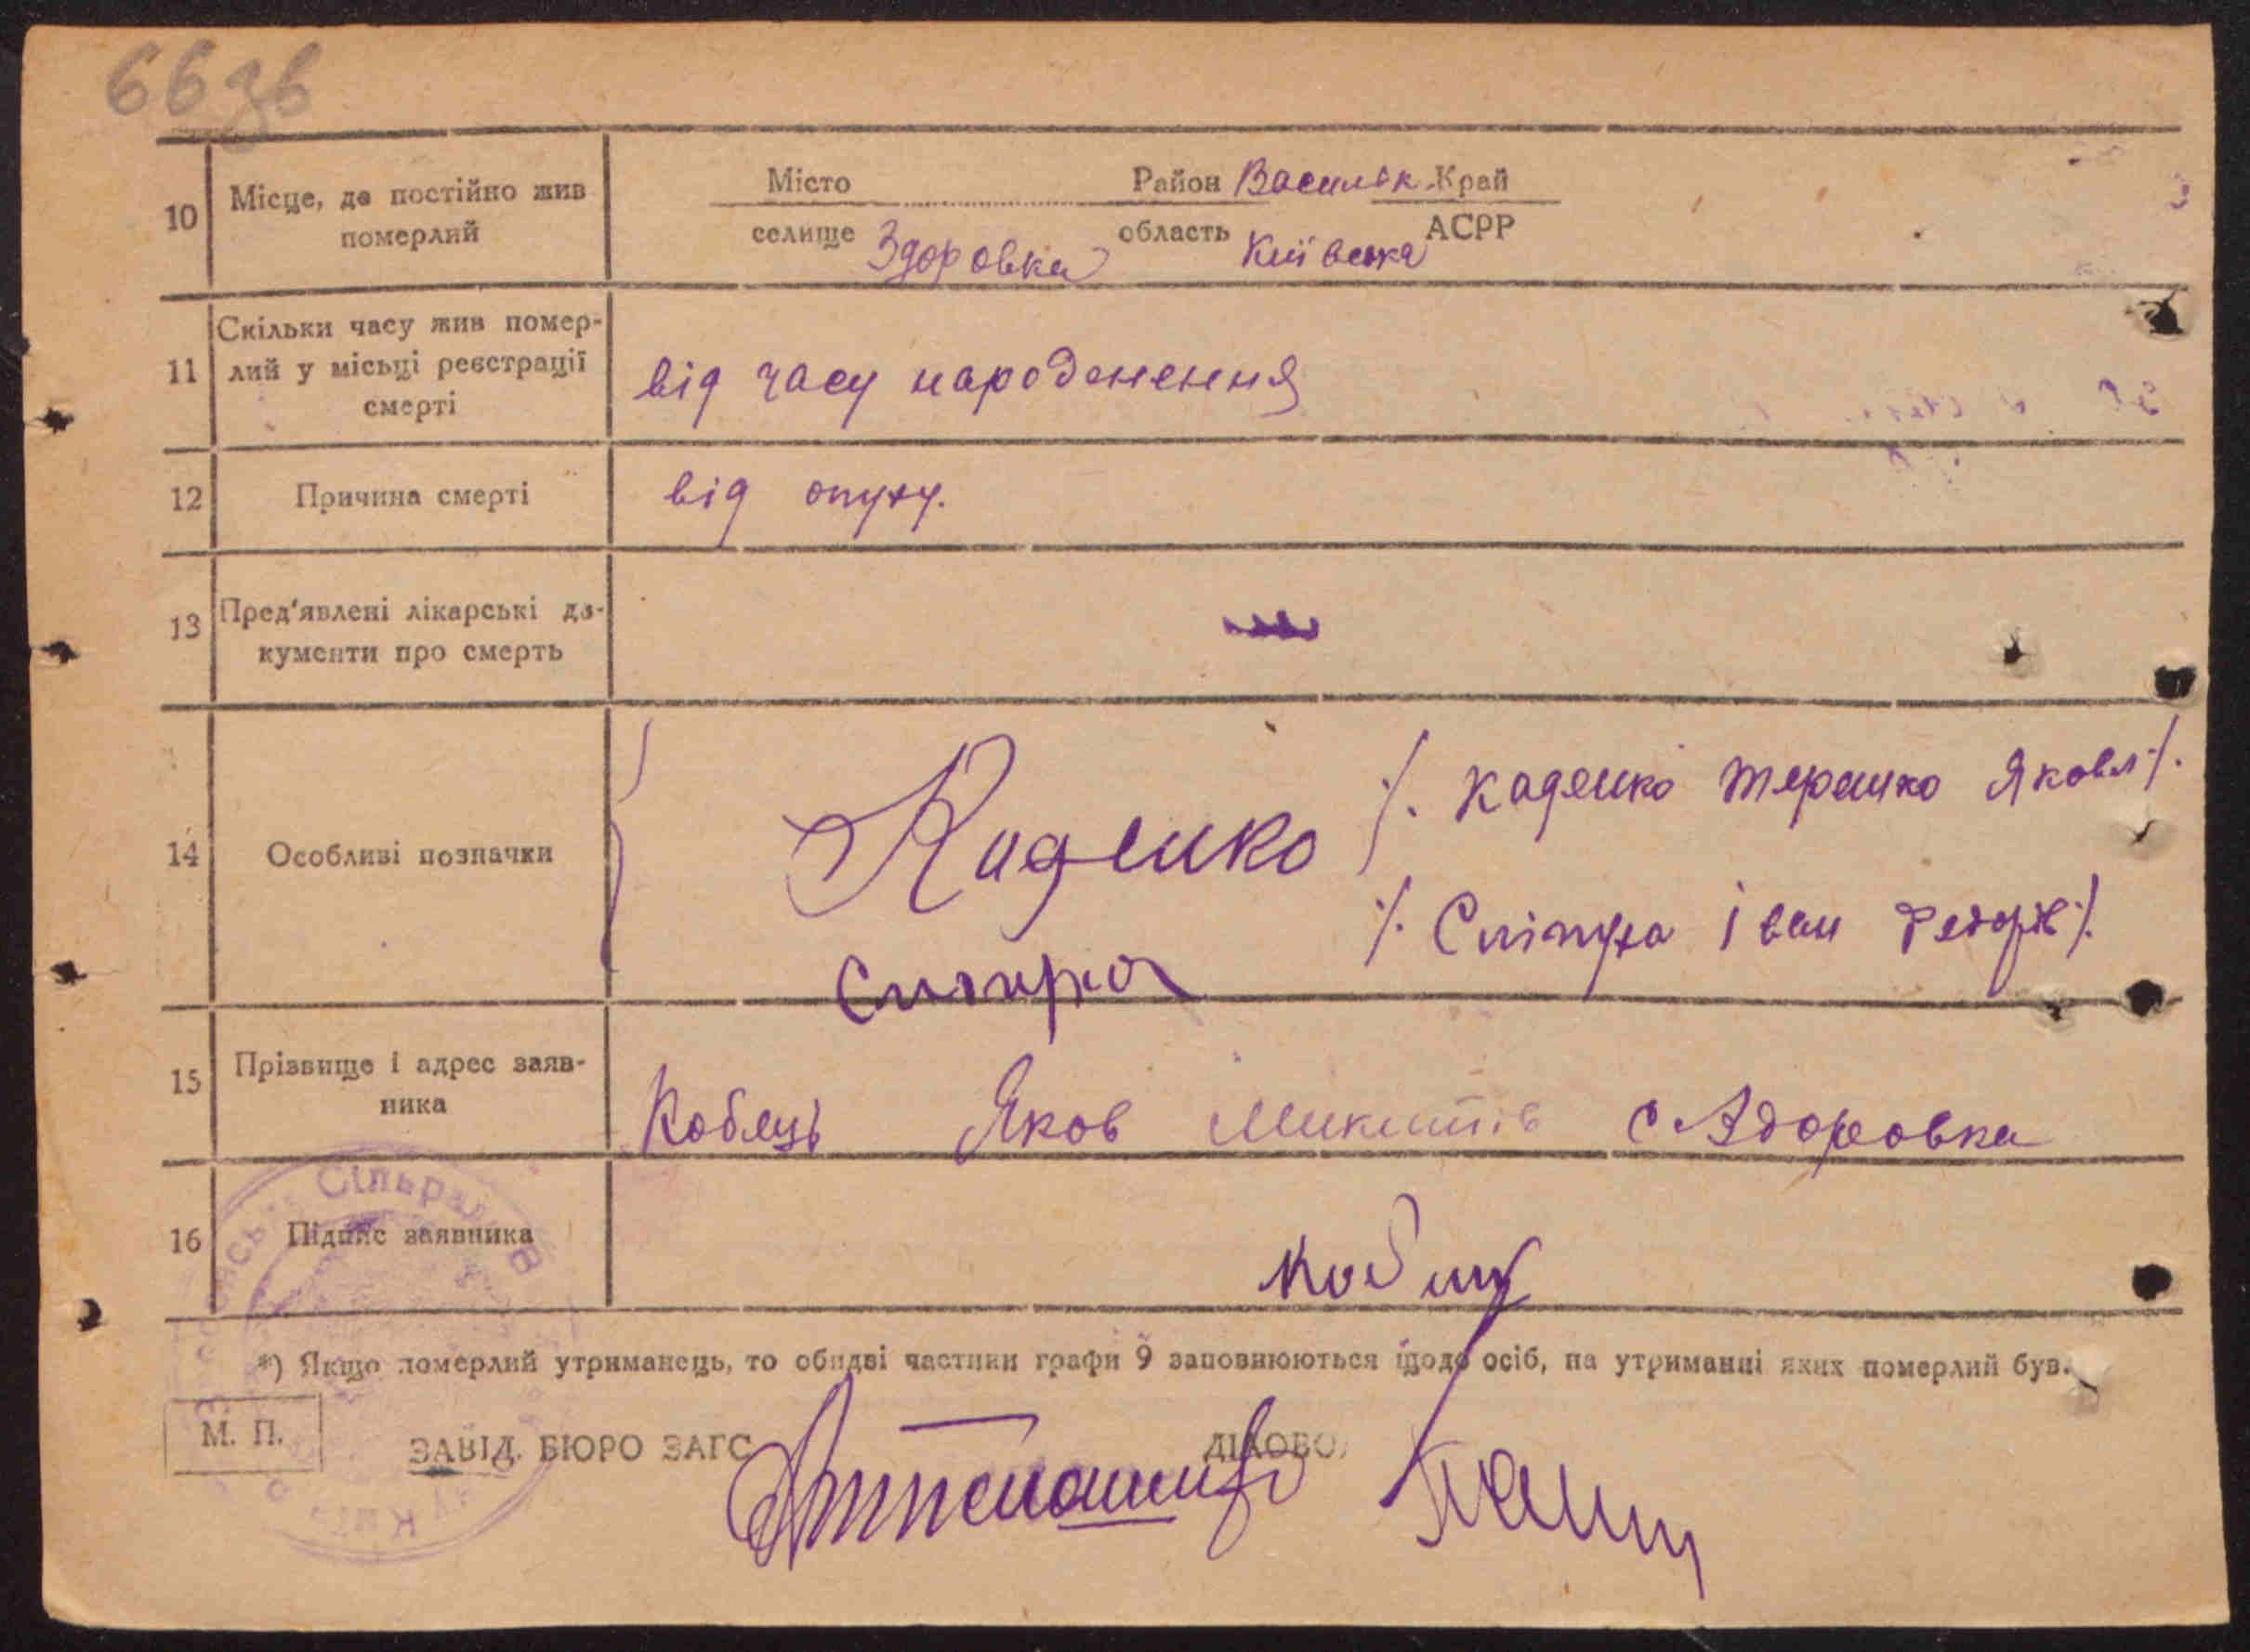 66 зв
10 Місце, де постійно жив померлий
Місто Район Васильк. Край
селище Здоровка область Київська АСРР
11 Скільки часу жив помер-
лий у місьці реєстрації
смерті
від часу народження
12 Причина смерті від опуху.
13 Пред'явлені лікарські до-
кументи про смерть
14 Особливі позначки
Каденко /. Каденко Яковл /.
/. Сліпуха Іван Федорів /.
15 Прізвище і адрес заяв-
ника
Кобець Яков Микитів с Здоровка
16 Підпис заявника
*) Якщо померлий утриманець, то обидві частини графи 9 заповнюються щодо осіб, на утриманні яких померлий був.
М. П. ЗАВІД. БЮРО ЗАГС ДІЛОВОД
Сільрада